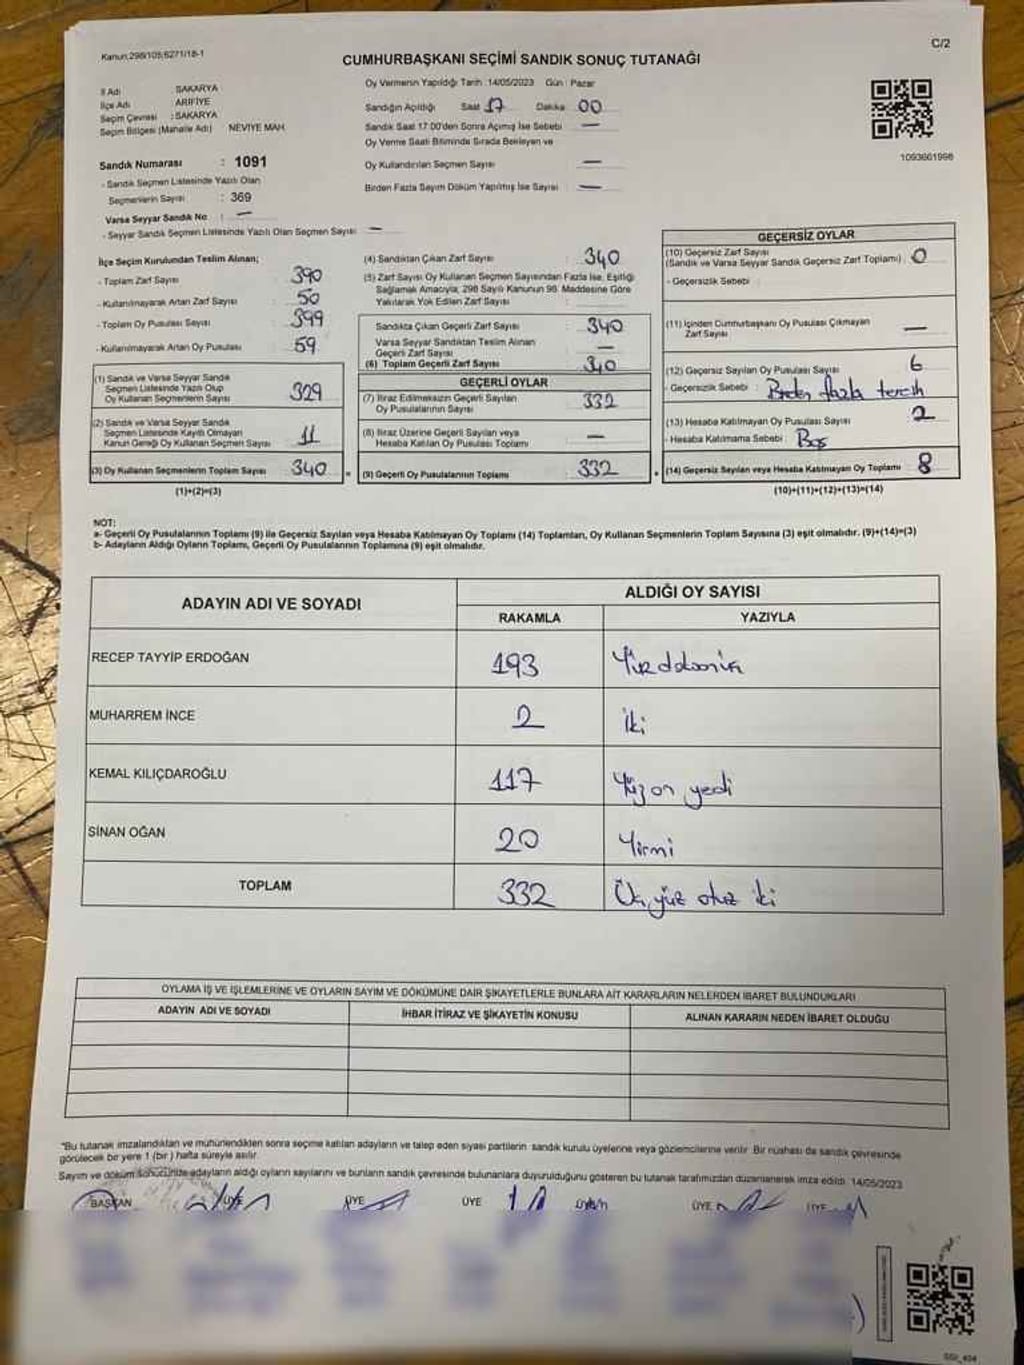 Kanun:298/105;6271/18-1
C/2
CUMHURBAŞKANI SEÇİMİ SANDIK SONUÇ TUTANAĞI
İl Adı : SAKARYA
İlçe Adı : ARİFİYE
Seçim Çevresi : SAKARYA
Seçim Bölgesi (Mahalle Adı) NEVİYE MAH.
Oy Vermenin Yapıldığı Tarih :14/05/2023 Gün : Pazar
Sandığın Açıldığı Saat 17 Dakika 00
Sandık Saat 17:00'den Sonra Açılmış İse Sebebi —
Oy Verme Saati Bitiminde Sırada Bekleyen ve
Oy Kullandırılan Seçmen Sayısı —
Birden Fazla Sayım Döküm Yapılmış İse Sayısı —
1093661998
Sandık Numarası : 1091
- Sandık Seçmen Listesinde Yazılı Olan
Seçmenlerin Sayısı : 369
Varsa Seyyar Sandık No : —
- Seyyar Sandık Seçmen Listesinde Yazılı Olan Seçmen Sayısı : —
İlçe Seçim Kurulundan Teslim Alınan;
- Toplam Zarf Sayısı 390
- Kullanılmayarak Artan Zarf Sayısı 50
- Toplam Oy Pusulası Sayısı 399
- Kullanılmayarak Artan Oy Pusulası 59
(1) Sandık ve Varsa Seyyar Sandık
Seçmen Listesinde Yazılı Olup
Oy Kullanan Seçmenlerin Sayısı 329
(2) Sandık ve Varsa Seyyar Sandık
Seçmen Listesinde Kayıtlı Olmayan
Kanun Gereği Oy Kullanan Seçmen Sayısı 11
(3) Oy Kullanan Seçmenlerin Toplam Sayısı 340 =
(1)+(2)=(3)
(4) Sandıktan Çıkan Zarf Sayısı : 340
(5) Zarf Sayısı Oy Kullanan Seçmen Sayısından Fazla İse, Eşitliği
Sağlamak Amacıyla; 298 Sayılı Kanunun 98. Maddesine Göre
Yakılarak Yok Edilen Zarf Sayısı :
Sandıkta Çıkan Geçerli Zarf Sayısı : 340
Varsa Seyyar Sandıktan Teslim Alınan
Geçerli Zarf Sayısı —
(6) Toplam Geçerli Zarf Sayısı 340
GEÇERLİ OYLAR
(7) İtiraz Edilmeksizin Geçerli Sayılan
Oy Pusulalarının Sayısı : 332
(8) İtiraz Üzerine Geçerli Sayılan veya
Hesaba Katılan Oy Pusulası Toplamı : —
(9) Geçerli Oy Pusulalarının Toplamı : 332
GEÇERSİZ OYLAR
(10) Geçersiz Zarf Sayısı
(Sandık ve Varsa Seyyar Sandık Geçersiz Zarf Toplamı) : 0
- Geçersizlik Sebebi :
(11) İçinden Cumhurbaşkanı Oy Pusulası Çıkmayan
Zarf Sayısı —
(12) Geçersiz Sayılan Oy Pusulası Sayısı 6
- Geçersizlik Sebebi : fazla tercih
(13) Hesaba Katılmayan Oy Pusulası Sayısı 2
- Hesaba Katılmama Sebebi : Boş
(14) Geçersiz Sayılan veya Hesaba Katılmayan Oy Toplamı 8
(10)+(11)+(12)+(13)=(14)
NOT:
a- Geçerli Oy Pusulalarının Toplamı (9) ile Geçersiz Sayılan veya Hesaba Katılmayan Oy Toplamı (14) Toplamları, Oy Kullanan Seçmenlerin Toplam Sayısına (3) eşit olmalıdır. (9)+(14)=(3)
b- Adayların Aldığı Oyların Toplamı, Geçerli Oy Pusulalarının Toplamına (9) eşit olmalıdır.
ADAYIN ADI VE SOYADI
ALDIĞI OY SAYISI
RAKAMLA YAZIYLA
RECEP TAYYİP ERDOĞAN 193
MUHARREM İNCE 2 iki
KEMAL KILIÇDAROĞLU 117 Yüz on yedi
SİNAN OĞAN 20 Yirmi
TOPLAM 332 Üç yüz otuz iki
OYLAMA İŞ VE İŞLEMLERİNE VE OYLARIN SAYIM VE DÖKÜMÜNE DAİR ŞİKAYETLERLE BUNLARA AİT KARARLARIN NELERDEN İBARET BULUNDUKLARI
ADAYIN ADI VE SOYADI İHBAR İTİRAZ VE ŞİKAYETİN KONUSU ALINAN KARARIN NEDEN İBARET OLDUĞU
*Bu tutanak imzalandıktan ve mühürlendikten sonra seçime katılan adayların ve talep eden siyasi partilerin sandık kurulu üyelerine veya gözlemcilerine verilir. Bir nüshası da sandık çevresinde
görülecek bir yere 1 (bir) hafta süreyle asılır.
Sayım ve döküm sonucunda adayların aldığı oyların sayılarını ve bunların sandık çevresinde bulunanlara duyurulduğunu gösteren bu tutanak tarafımızdan düzenlenerek imza edildi. 14/05/2023
BAŞKAN ÜYE ÜYE ÜYE ÜYE ÜYE